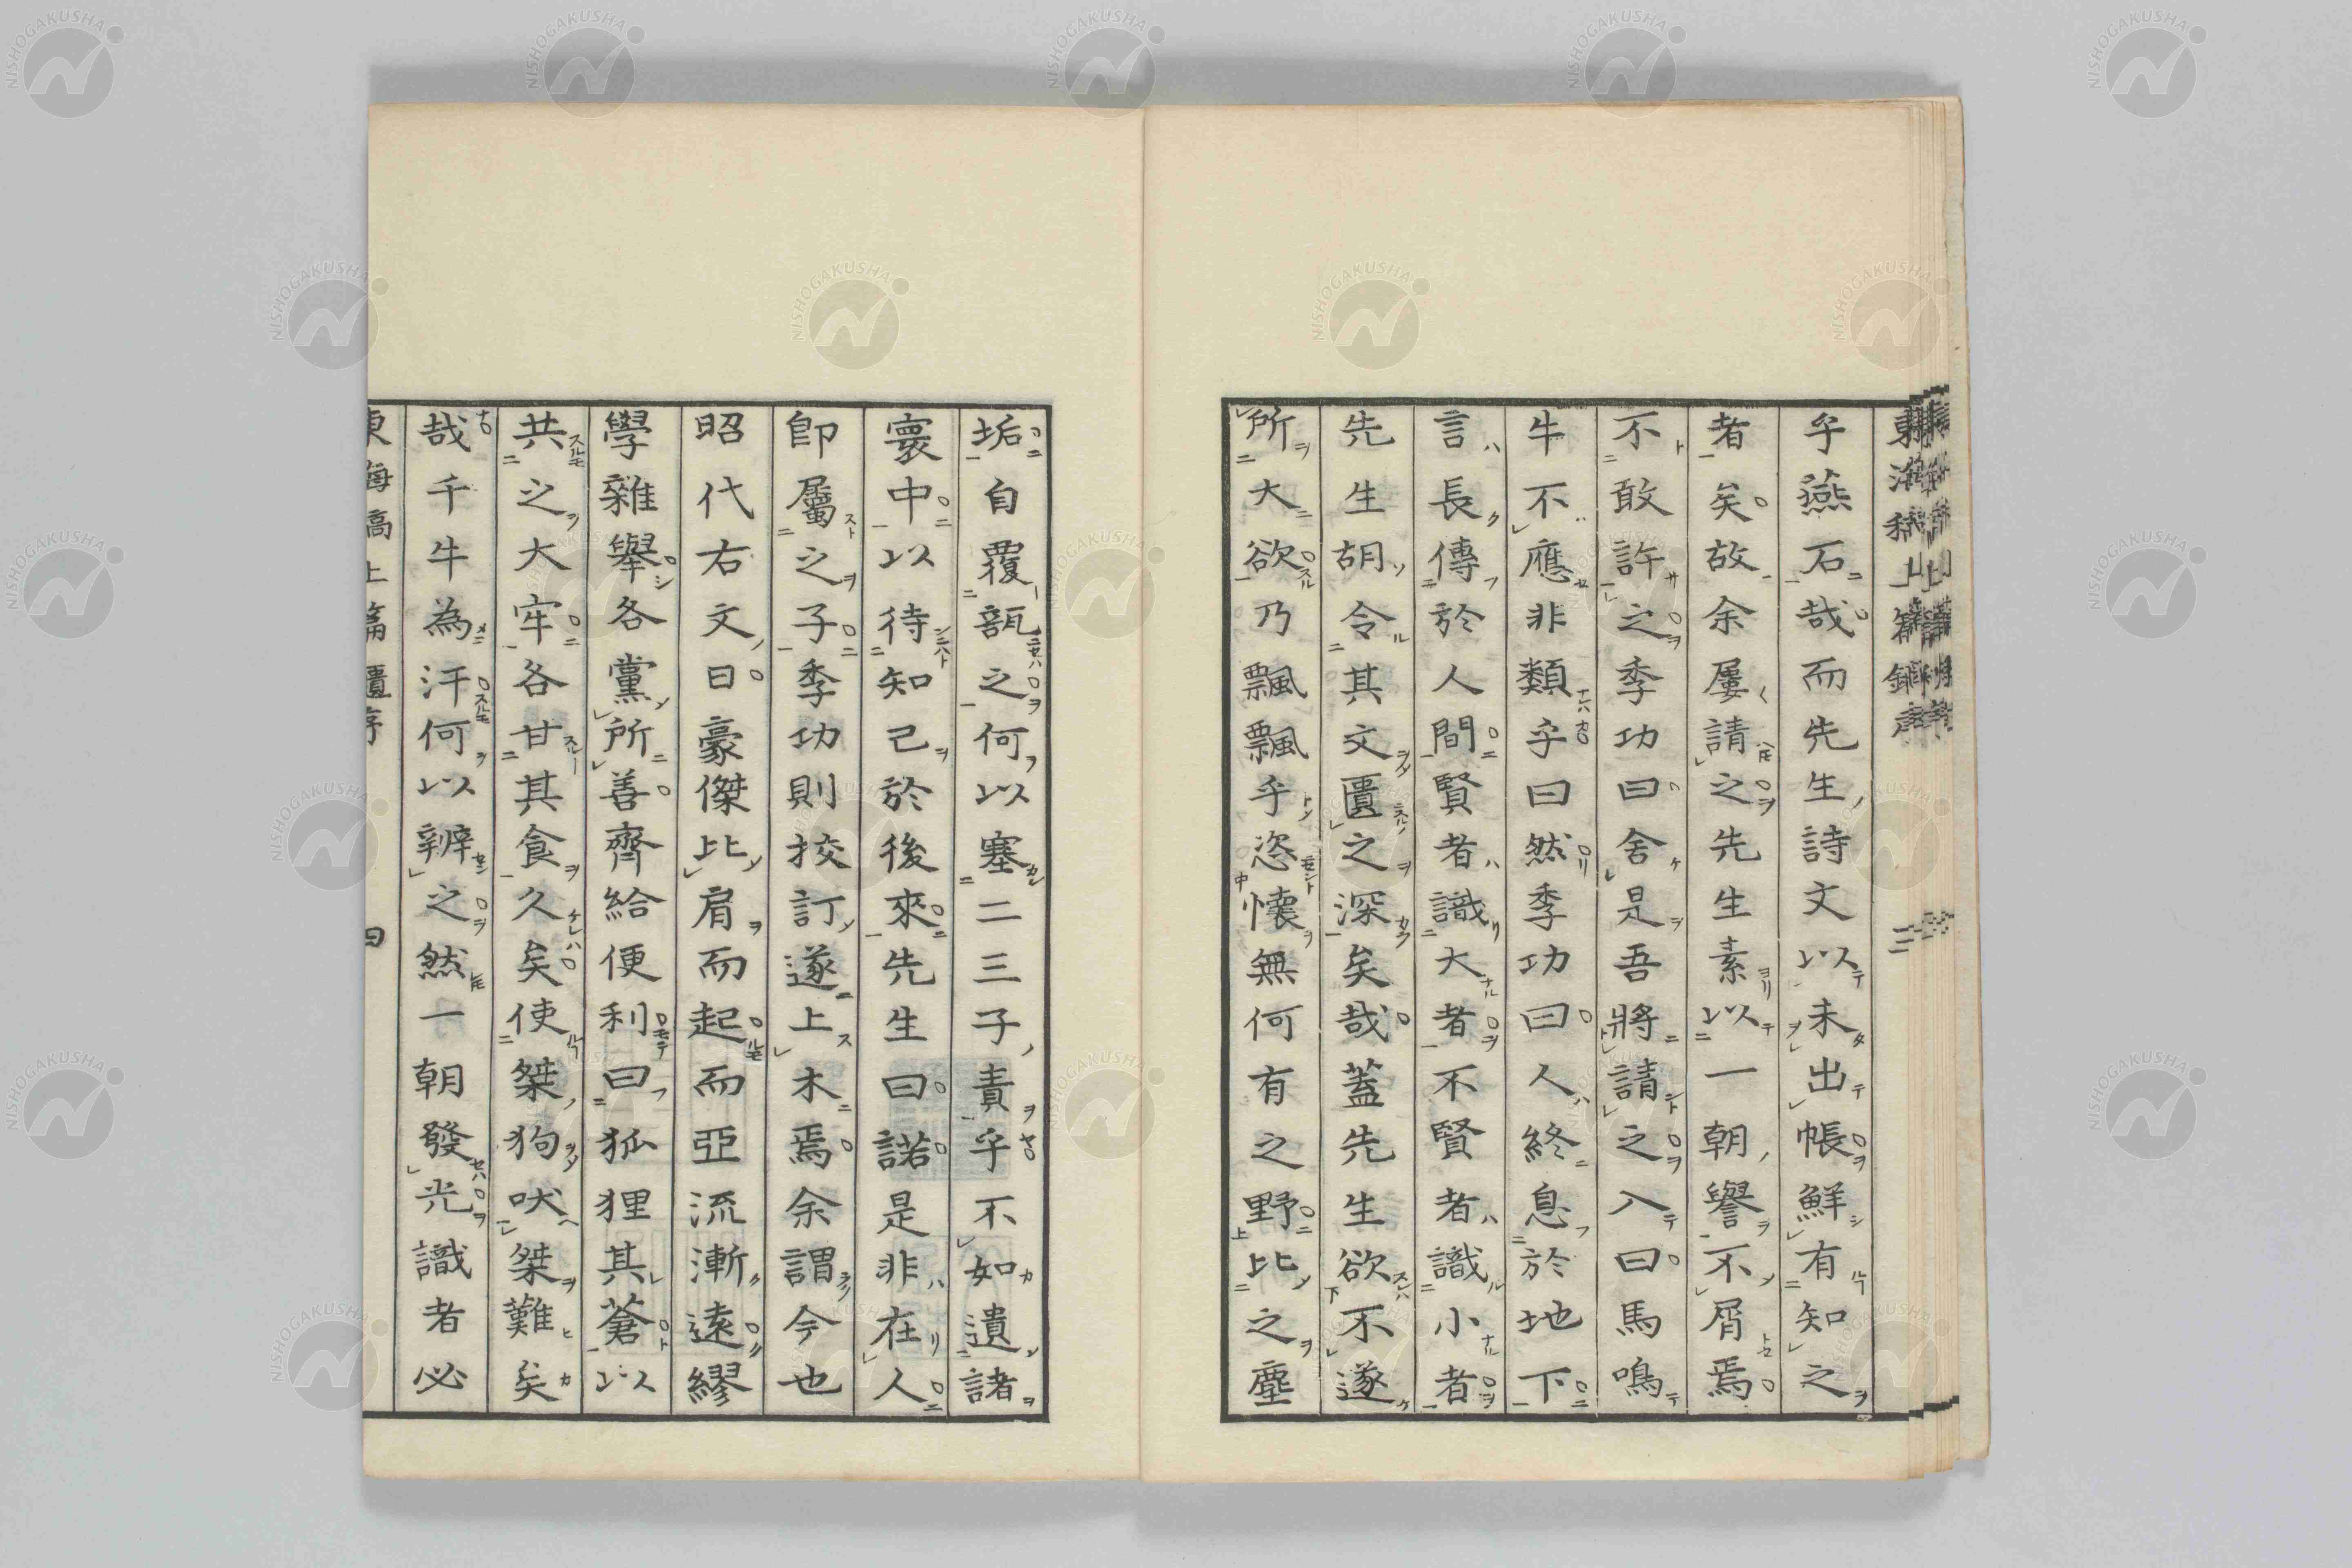 乎燕石哉而先生詩文以未出帳鮮有知之
者矣故余屢請之先生素以一朝譽不屑焉
不敢許之季功曰舍是吾將請之入曰馬鳴
牛不應非類乎曰然季功曰人終息於地下
言長傳於人間賢者識大者不賢者識小者
先生胡令其文匱之深矣哉蓋先生欲不遂
所大欲乃飄飄乎恣懷無何有之野比之塵
垢自覆瓿之何以塞二三子責乎不如遺諸
寰中以待知己於後來先生曰諾是非在人
卽屬之子季功則挍訂遂上木焉余謂今也
昭代右文曰豪傑比肩而起而亞流漸遠繆
學雜舉各黨所善齊給便利曰狐狸其蒼以
共之大牢各甘其食久矣使桀狗吠桀難矣
哉千牛為汗何以辨之然一朝發光識者必
東海稿上篇匱序
四
NISHOGAKUSHA